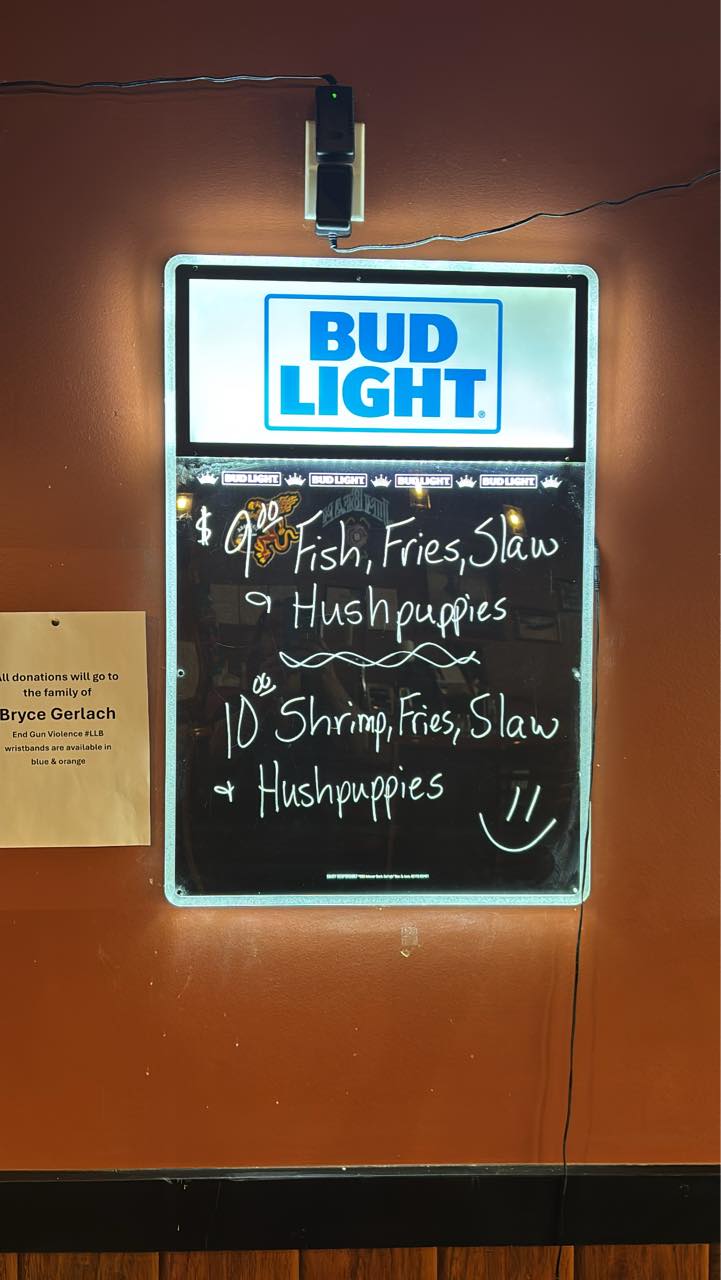 BUD
LIGHT
BUD LIGHT BUD LIGHT BUD LIGHT BUD LIGHT
JIM BEAM
$9.00 Fish, Fries, Slaw
& Hushpuppies
10.00 Shrimp, Fries, Slaw
& Hushpuppies
All donations will go to
the family of
Bryce Gerlach
End Gun Violence #LLB
wristbands are available in
blue & orange